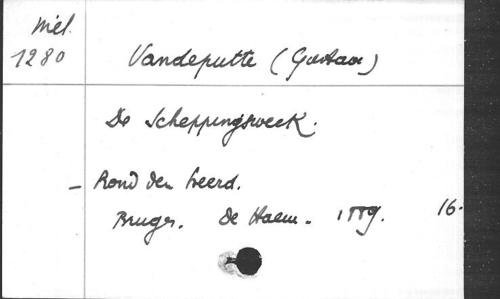 Mél.
1280
Vandeputte (Gustaav)
De Scheppingsweek.
- Rond den heerd.
Bruges. De Haene. 1889. 16.